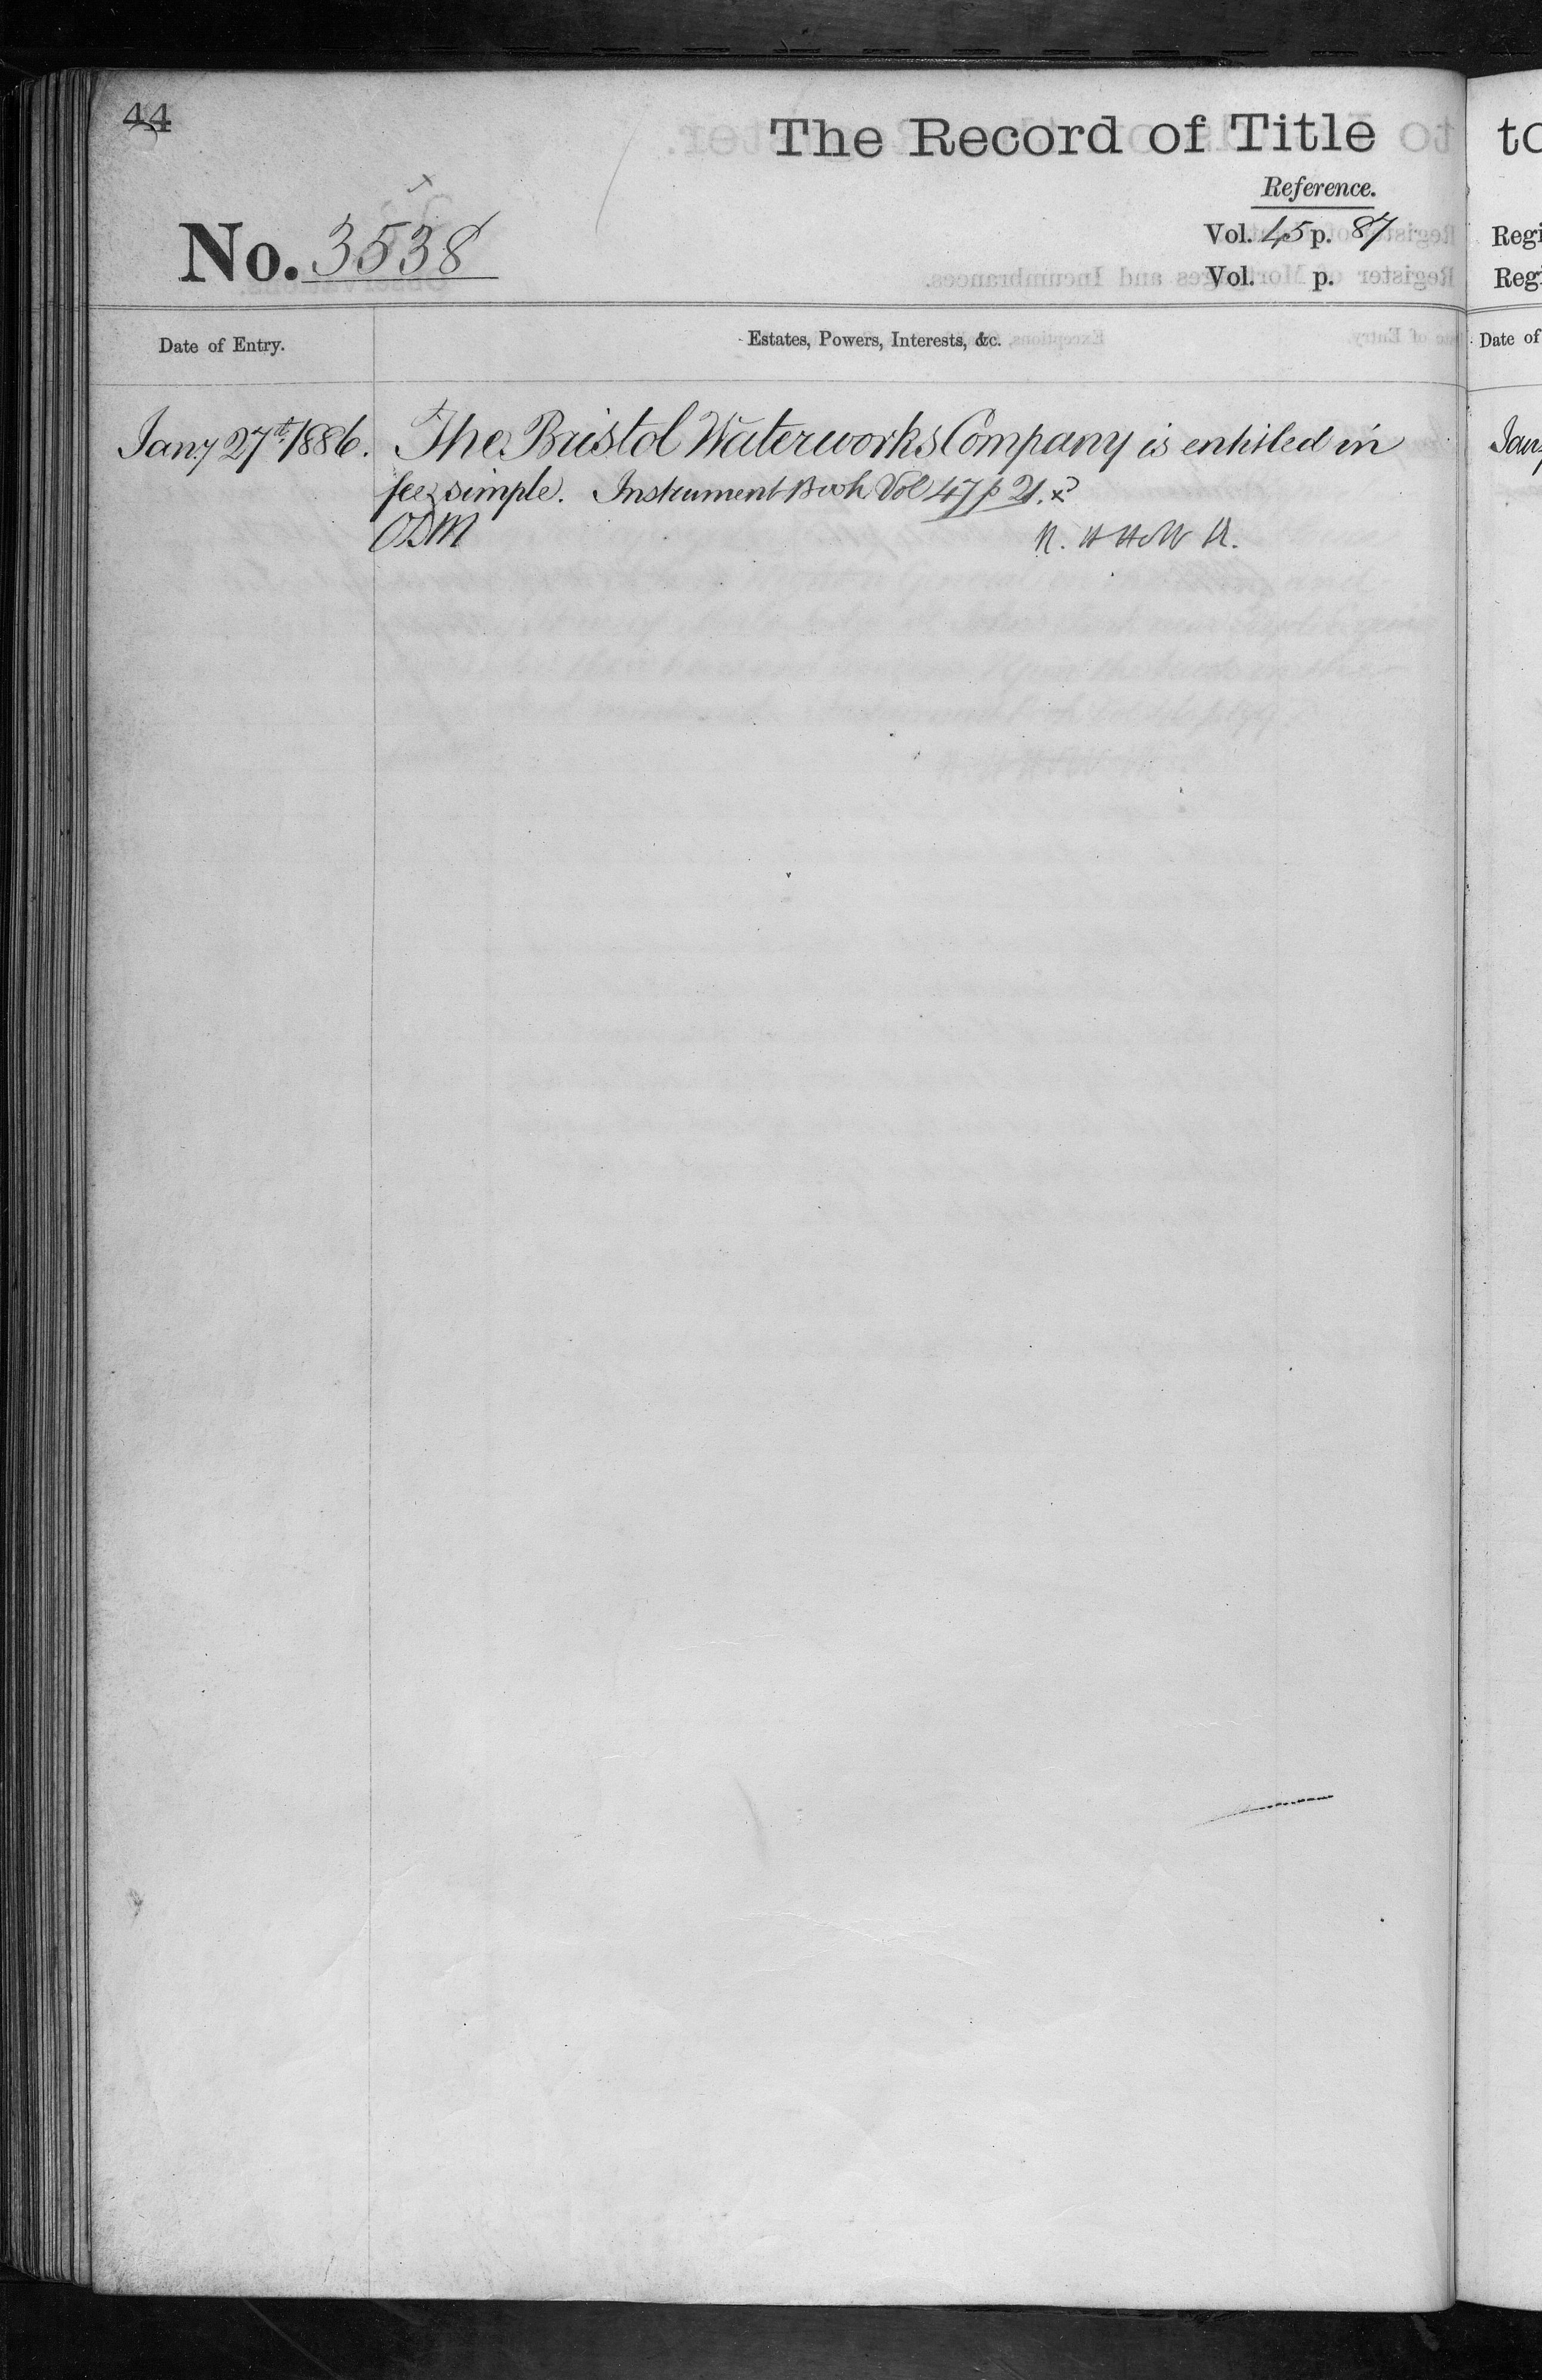 44
The Record of Title
Reference.
No. 3538
Vol. 45 p. 87
Vol. p.
Date of Entry.
Estates, Powers, Interests, &c.
Jany 27th 1886.
The Bristol Waterworks Company is entitled in
fee simple. Instrument Book Vol 47 p 21. x
ODM
to
Regi
Regi
Date of
Jany